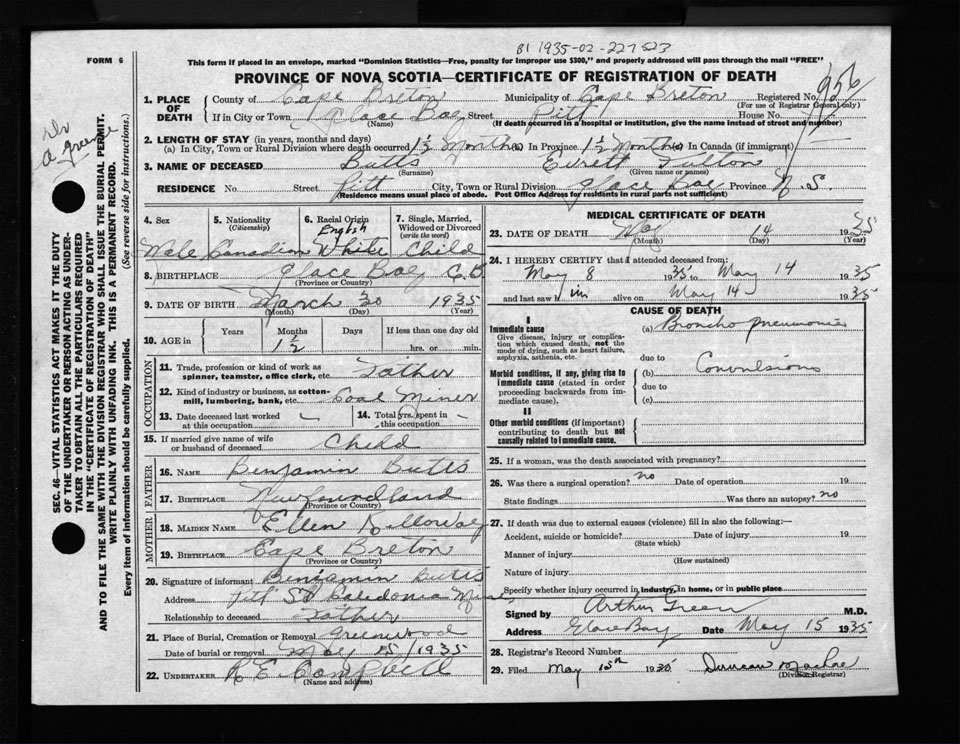 B1 1935-02-227523
FORM 6
This form if placed in an envelope, marked "Dominion Statistics—Free, penalty for improper use $300," and properly addressed will pass through the mail "FREE"
PROVINCE OF NOVA SCOTIA—CERTIFICATE OF REGISTRATION OF DEATH
1. PLACE OF DEATH
County of Cape Breton Municipality of Cape Breton Registered No. 956
(For use of Registrar General only)
If in City or Town Glace Bay Street Pitt House No.
(Name) (If death occurred in a hospital or institution, give the name instead of street and number)
2. LENGTH OF STAY (in years, months and days)
(a) In City, Town or Rural Division where death occurred 1½ Months (b) In Province 1½ Months (c) In Canada (if immigrant)
3. NAME OF DECEASED Butts Everett Fulton
(Surname) (Given name or names)
RESIDENCE No Street Pitt City, Town or Rural Division Glace Bay Province N.S.
(Residence means usual place of abode. Post Office Address for residents in rural parts not sufficient)
4. Sex 5. Nationality 6. Racial Origin 7. Single, Married, Widowed or Divorced
(Citizenship) English (write the word)
Male Canadian White Child
8. BIRTHPLACE Glace Bay C.B
(Province or Country)
9. DATE OF BIRTH March 30 1935
(Month) (Day) (Year)
10. AGE in Years Months Days If less than one day old
1½ hrs. or min.
OCCUPATION
11. Trade, profession or kind of work as spinner, teamster, office clerk, etc. Father
12. Kind of industry or business, as cotton-mill, lumbering, bank, etc. Coal Miner
13. Date deceased last worked at this occupation – 14. Total yrs. spent in this occupation –
15. If married give name of wife or husband of deceased Child
FATHER
16. NAME Benjamin Butts
17. BIRTHPLACE Newfoundland
(Province or Country)
MOTHER
18. MAIDEN NAME Ellen
19. BIRTHPLACE Cape Breton
(Province or Country)
20. Signature of informant Benjamin Butts
Address Pitt St Caledonia Mines
Relationship to deceased Father
21. Place of Burial, Cremation or Removal Greenwood
Date of burial or removal May 15/1935
22. UNDERTAKER R E Campbell
(Name and address)
MEDICAL CERTIFICATE OF DEATH
23. DATE OF DEATH May 14 1935
(Month) (Day) (Year)
24. I HEREBY CERTIFY that I attended deceased from:
May 8 1935 to May 14 1935
and last saw him alive on May 14 1935
CAUSE OF DEATH
I
Immediate cause (a) Broncho pneumonia
Give disease, injury or complication which caused death, not the mode of dying, such as heart failure, asphyxia, asthenia, etc.
due to
Morbid conditions, if any, giving rise to immediate cause (stated in order proceeding backwards from immediate cause).
(b) Convulsions
due to
(c)
II
Other morbid conditions (if important) contributing to death but not causally related to immediate cause.
25. If a woman, was the death associated with pregnancy?
26. Was there a surgical operation? no Date of operation 19
State findings Was there an autopsy? no
27. If death was due to external causes (violence) fill in also the following:—
Accident, suicide or homicide? Date of injury 19
(State which)
Manner of injury
(How sustained)
Nature of injury
Specify whether injury occurred in industry, in home, or in public place
Signed by Arthur Green M.D.
Address Glace Bay Date May 15 1935
28. Registrar's Record Number
29. Filed May 15th 1935 Duncan MacRae
(Division Registrar)
Dr
A green
SEC. 46—VITAL STATISTICS ACT MAKES IT THE DUTY OF THE UNDERTAKER OR PERSON ACTING AS UNDERTAKER TO OBTAIN ALL THE PARTICULARS REQUIRED IN THE "CERTIFICATE OF REGISTRATION OF DEATH" AND TO FILE THE SAME WITH THE DIVISION REGISTRAR WHO SHALL ISSUE THE BURIAL PERMIT.
WRITE PLAINLY WITH UNFADING INK. THIS IS A PERMANENT RECORD.
Every item of information should be carefully supplied. (See reverse side for instructions.)